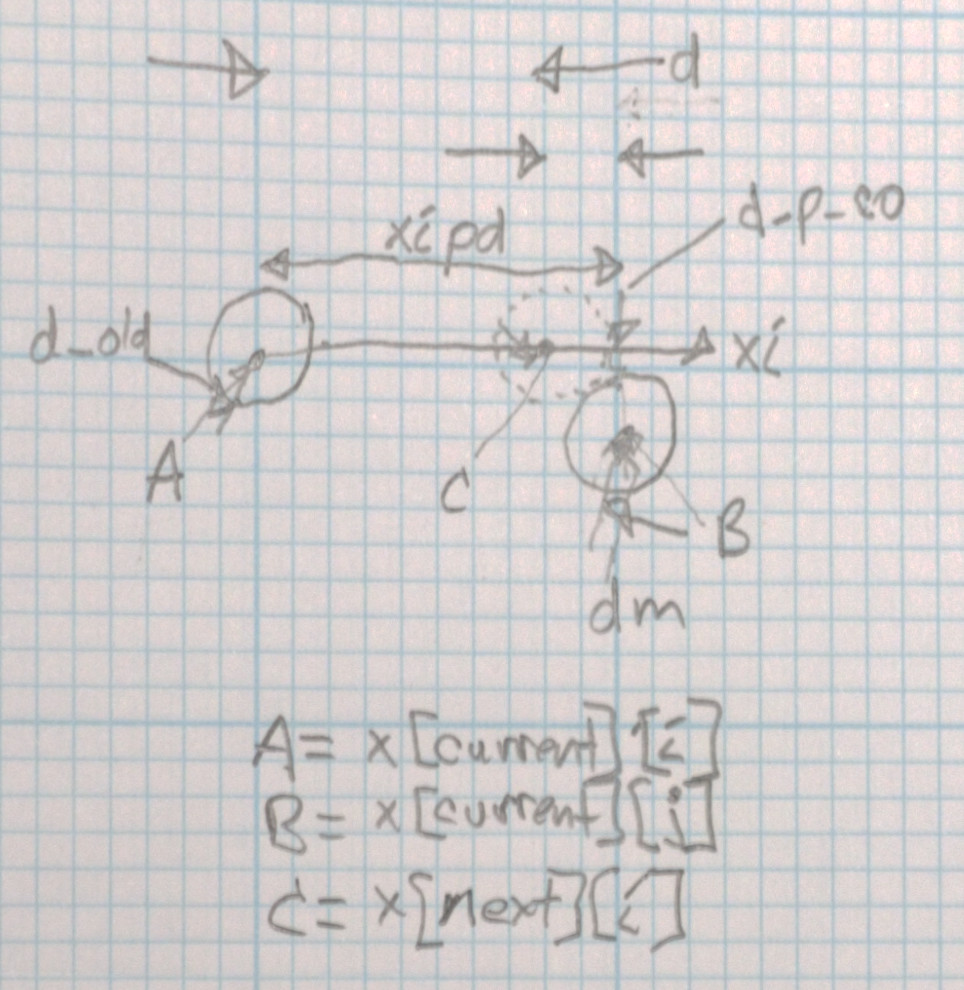 d
d_p_co
xipd
d_old
xi
A
C
B
dm
A= x[current][i]
B= x[current][j]
C= x[next][i]